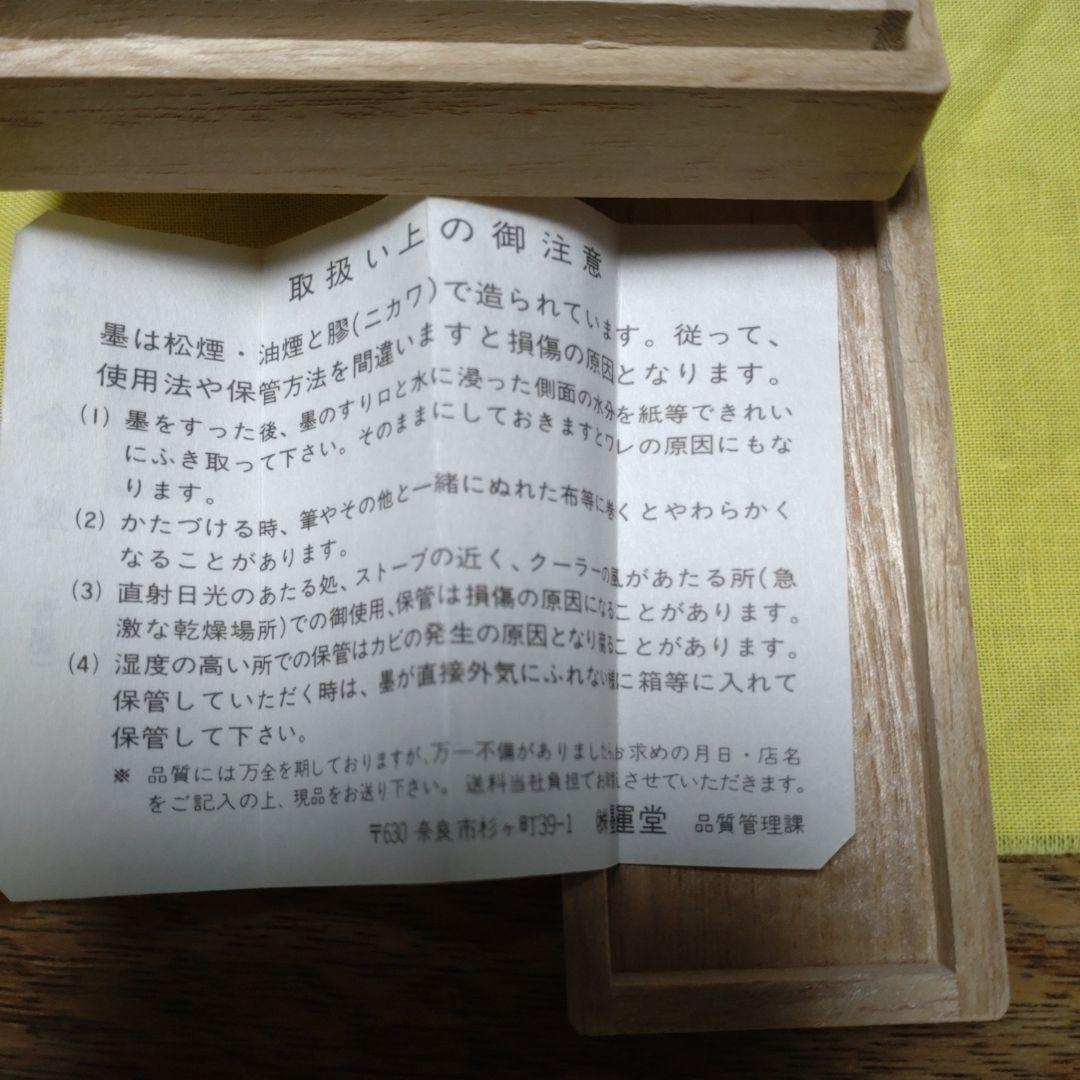 取扱い上の御注意
墨は松煙・油煙と膠(ニカワ)で造られています。従って、
使用法や保管方法を間違いますと損傷の原因となります。
(1) 墨をすった後、墨のすり口と水に浸った側面の水分を紙等できれい
にふき取って下さい。そのままにしておきますとワレの原因にもな
ります。
(2) かたづける時、筆やその他と一緒にぬれた布等に巻くとやわらかく
なることがあります。
(3) 直射日光のあたる処、ストーブの近く、クーラーの風があたる所(急
激な乾燥場所)での御使用、保管は損傷の原因になることがあります。
(4) 湿度の高い所での保管はカビの発生の原因となり腐ることがあります。
保管していただく時は、墨が直接外気にふれない様に箱等に入れて
保管して下さい。
※ 品質には万全を期しておりますが、万一不備がありましたらお求めの月日・店名
をご記入の上、現品をお送り下さい。送料当社負担でお
させていただきます。
〒630 奈良市杉ヶ町39-1 ㈱
運堂 品質管理課